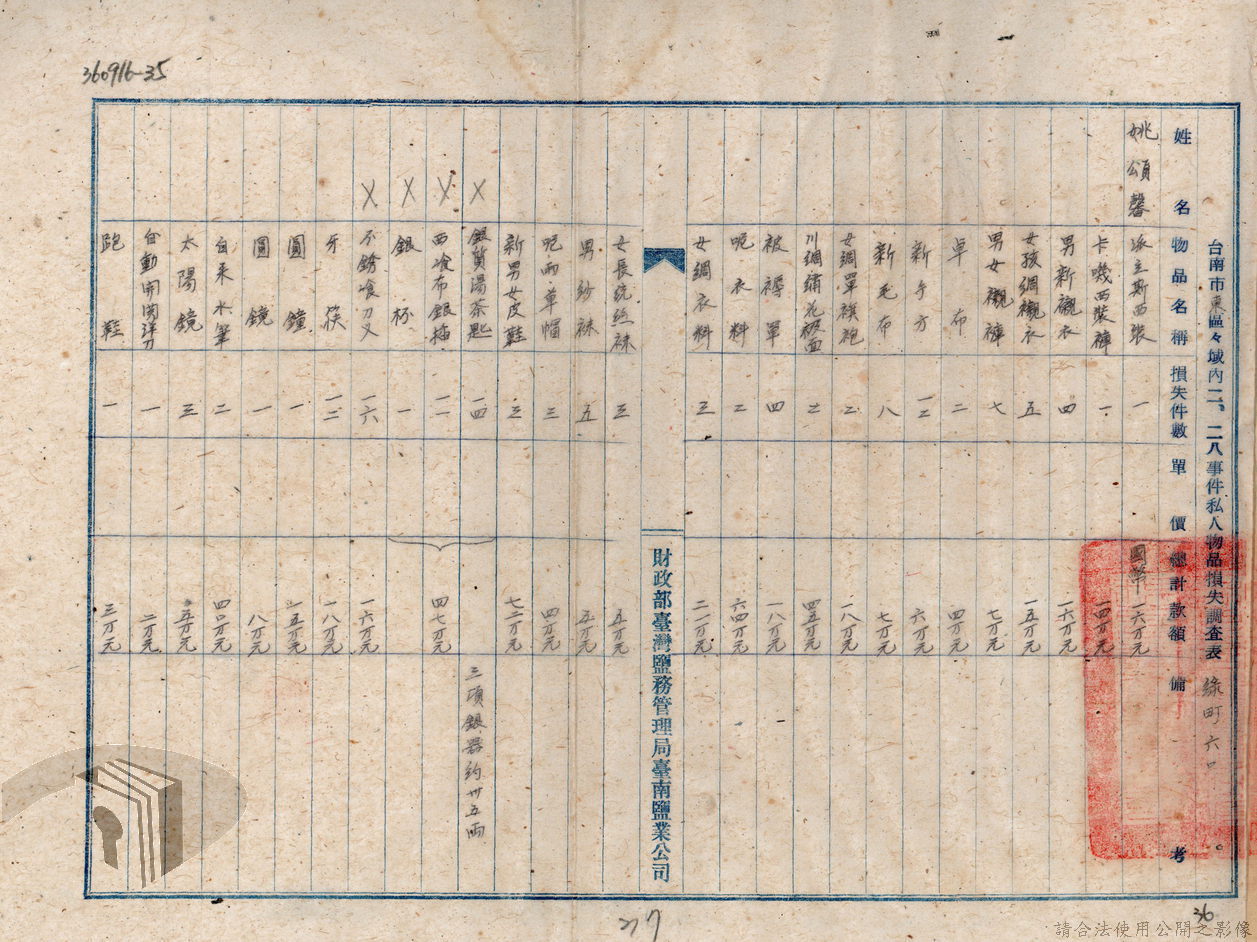 360916-35
台南市東區々域內二、二八事件私人物品損失調查表 綠町六口
姓名 物品名稱 損失件數 單價 總計款額 備考
姚頌馨 派立斯西裝 一 國幣一六万元
卡嘰西裝褲 一 一四万元
男新襯衣 四 一六万元
女孩綢襯衣 五 一五万元
男女襯褲 七 七万元
卓布 二 四万元
新手方 一二 六万元
新毛布 八 七万元
女綢單旗袍 二 一八万元
川綢繡花被面 二 四五万元
被褥單 四 一八万元
呢衣料 二 六四万元
女綢衣料 三 二一万元
財政部臺灣鹽務管理局臺南鹽業公司
女長統絲袜 三 五万元
男紗袜 五 五万元
呢雨草帽 三 四万元
新男女皮鞋 三 七二万元
X 銀質湯茶匙 一四 三項銀器約卅五兩
X 西飡布銀插 一一 四七万元
X 銀杯 一
X 不銹飡刀叉 一六 一六万元
牙筷 一二 一八万元
圓鐘 一 一五万元
圓鏡 一 八万元
自来水筆 二 四〇万元
太陽鏡 三 五万元
自動開関洋刀 一 二万元
跑鞋 一 三万元
36
217
請合法使用公開之影像